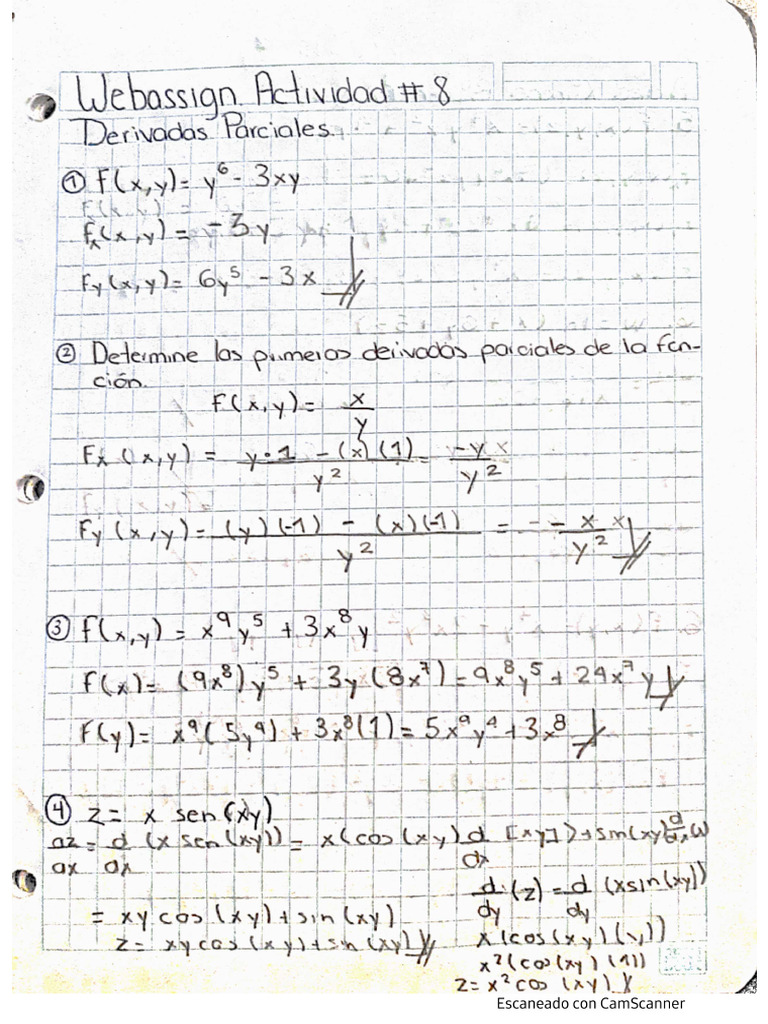 Webassign. Actividad # 8
Derivadas Parciales.
① f(x,y)= y⁶ - 3xy
fₓ(x,y) = -3y
Fy(x,y)= 6y⁵ - 3x
② Determine las primeras derivadas parciales de la fcn-
ción.
F(x,y) = x/y
Fx (x,y) = (y·1 - (x)(1))/y² = -y x/y²
Fy (x,y) = ((y)(-1) - (x)(-1))/y² = - - x/y²
③ f(x,y) = x⁹y⁵ + 3x⁸y
f(x)= (9x⁸)y⁵ + 3y(8x⁷) = 9x⁸y⁵ + 24x⁷y
F(y)= x⁹(5y⁴) + 3x⁸(1) = 5x⁹y⁴ + 3x⁸
④ z= x sen(xy)
az/ax = d/dx (x sen(xy)) = x(cos(xy) d/dx [xy]) + sin(xy) d/dx
d/dy (z) = d/dy (xsin(xy))
= xy cos(xy) + sin(xy)
x(cos(xy)(y))
z= xy cos(xy) + sin(xy)
x²(cos(xy)(1))
z= x² cos (xy)
Escaneado con CamScanner